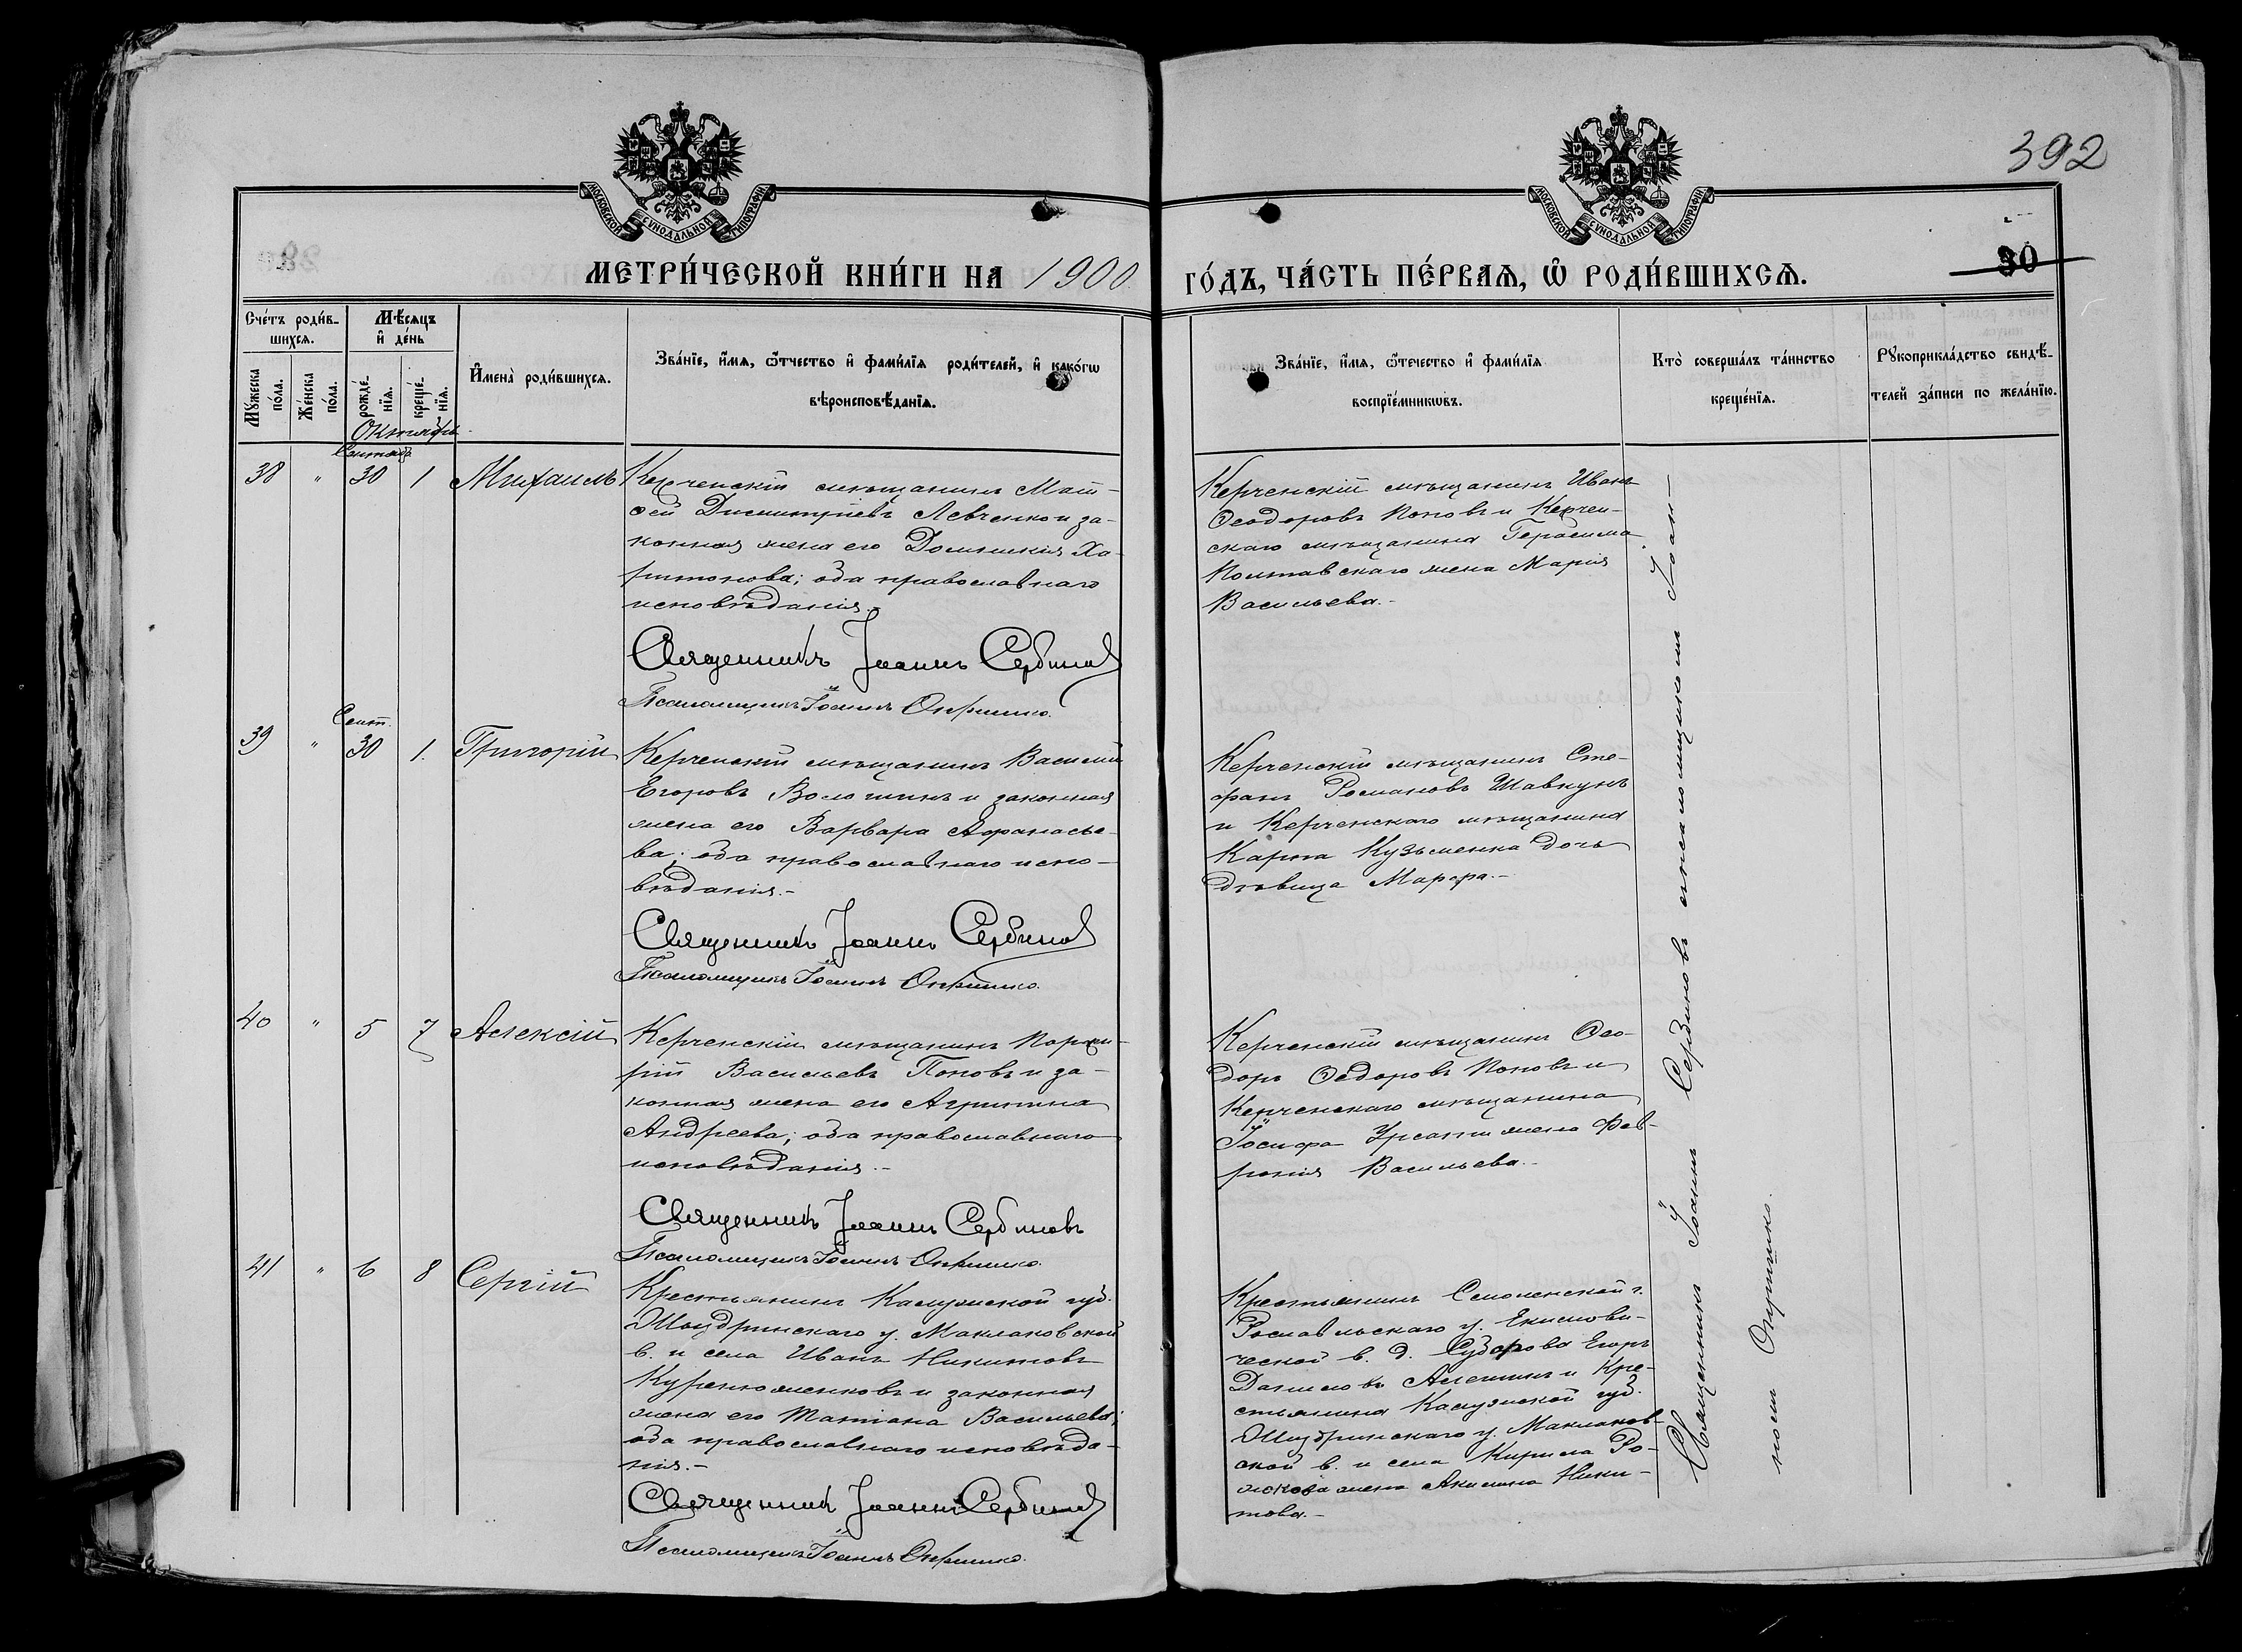 392
МОСКОВСКОЙ СѴНОДАЛЬНОЙ ТИПОГРАФІИ
МОСКОВСКОЙ СѴНОДАЛЬНОЙ ТИПОГРАФІИ
30
МЕТРИ́ЧЕСКОЙ КНИ́ГИ НА 1900 ГО́ДЪ, ЧА́СТЬ ПЕ́РВАѦ, Ѡ РОДИ́ВШИХСѦ.
Сче́тъ роди́в-
шихсѧ.
Мꙋ́жеска по́ла.
Же́нска по́ла.
Мѣ́сѧцъ
и҆ де́нь
рожде́-
нїѧ.
креще́-
нїѧ.
И҆мена̀ роди́вшихсѧ.
Зва́нїе, и҆́мѧ, ѻ҆́тчество и҆ фами́лїѧ роди́телей, и҆ како́гѡ
вѣроисповѣ́данїѧ.
Зва́нїе, и҆́мѧ, ѻ҆́течество и҆ фами́лїѧ
воспрїе́мникѡвъ.
Кто̀ соверша́лъ та́инство
креще́нїѧ.
Рꙋкоприкла́дство свидѣ́-
телей за́писи по жела́нїю.
Октября
Сентяб.
38 " 30 1 Михаилъ
Керченскій мѣщанинъ Мат-
ѳей Димитріевъ Левченко и за-
конная жена его Домникія Ха-
ритонова; оба православнаго
исповѣданія.-
Священникъ Іоаннъ Сербиновъ
Псаломщикъ Іоаннъ Опришко.
Керченскій мѣщанинъ Иванъ
Ѳеодоровъ Поповъ и Керчен-
скаго мѣщанина Герасима
Полтавскаго жена Марія
Васильева.-
Сент.
39 " 30 1. Григорій
Керченскій мѣщанинъ Василій
Егоровъ Волошинъ и законная
жена его Варвара Аѳанасье-
ва; оба православнаго испо-
вѣданія.-
Священникъ Іоаннъ Сербиновъ
Псаломщикъ Іоаннъ Опришко.
Керченскій мѣщанинъ Сте-
фанъ Романовъ Шавкунъ
и Керченскаго мѣщанина
Карпа Кузьменка дочь
дѣвица Марѳа.-
40 " 5 7 Алексій
Керченскій мѣщанинъ Порфи-
рій Васильевъ Поповъ и за-
конная жена его Агрипина
Андреева; оба православнаго
исповѣданія.-
Священникъ Іоаннъ Сербиновъ
Псаломщикъ Іоаннъ Опришко.
Керченскій мѣщанинъ Ѳео-
доръ Ѳедоровъ Поповъ и
Керченскаго мѣщанина
Іосифа жена Фев-
ронія Васильева.-
41 " 6 8 Сергій
Крестьянинъ Калужской губ.
Жиздринскаго у. Маклаковской
в. и села Иванъ Никитовъ
и законная
жена его Татіана Васильева;
оба православнаго исповѣда-
нія.-
Священникъ Іоаннъ Сербиновъ
Псаломщикъ Іоаннъ Опришко.
Крестьянинъ Смоленской г.
Рославльскаго у. Екимови-
ческой в. д. Егоръ
Даниловъ Алешинъ и Кре-
стьянина Калужской губ.
Жиздринскаго у. Маклаков-
ской в. и села Кирила Ро-
жена Акилина Ники-
това.-
Священникъ Іоаннъ Сербиновъ съ псаломщикомъ Іоан-
номъ Опришко.